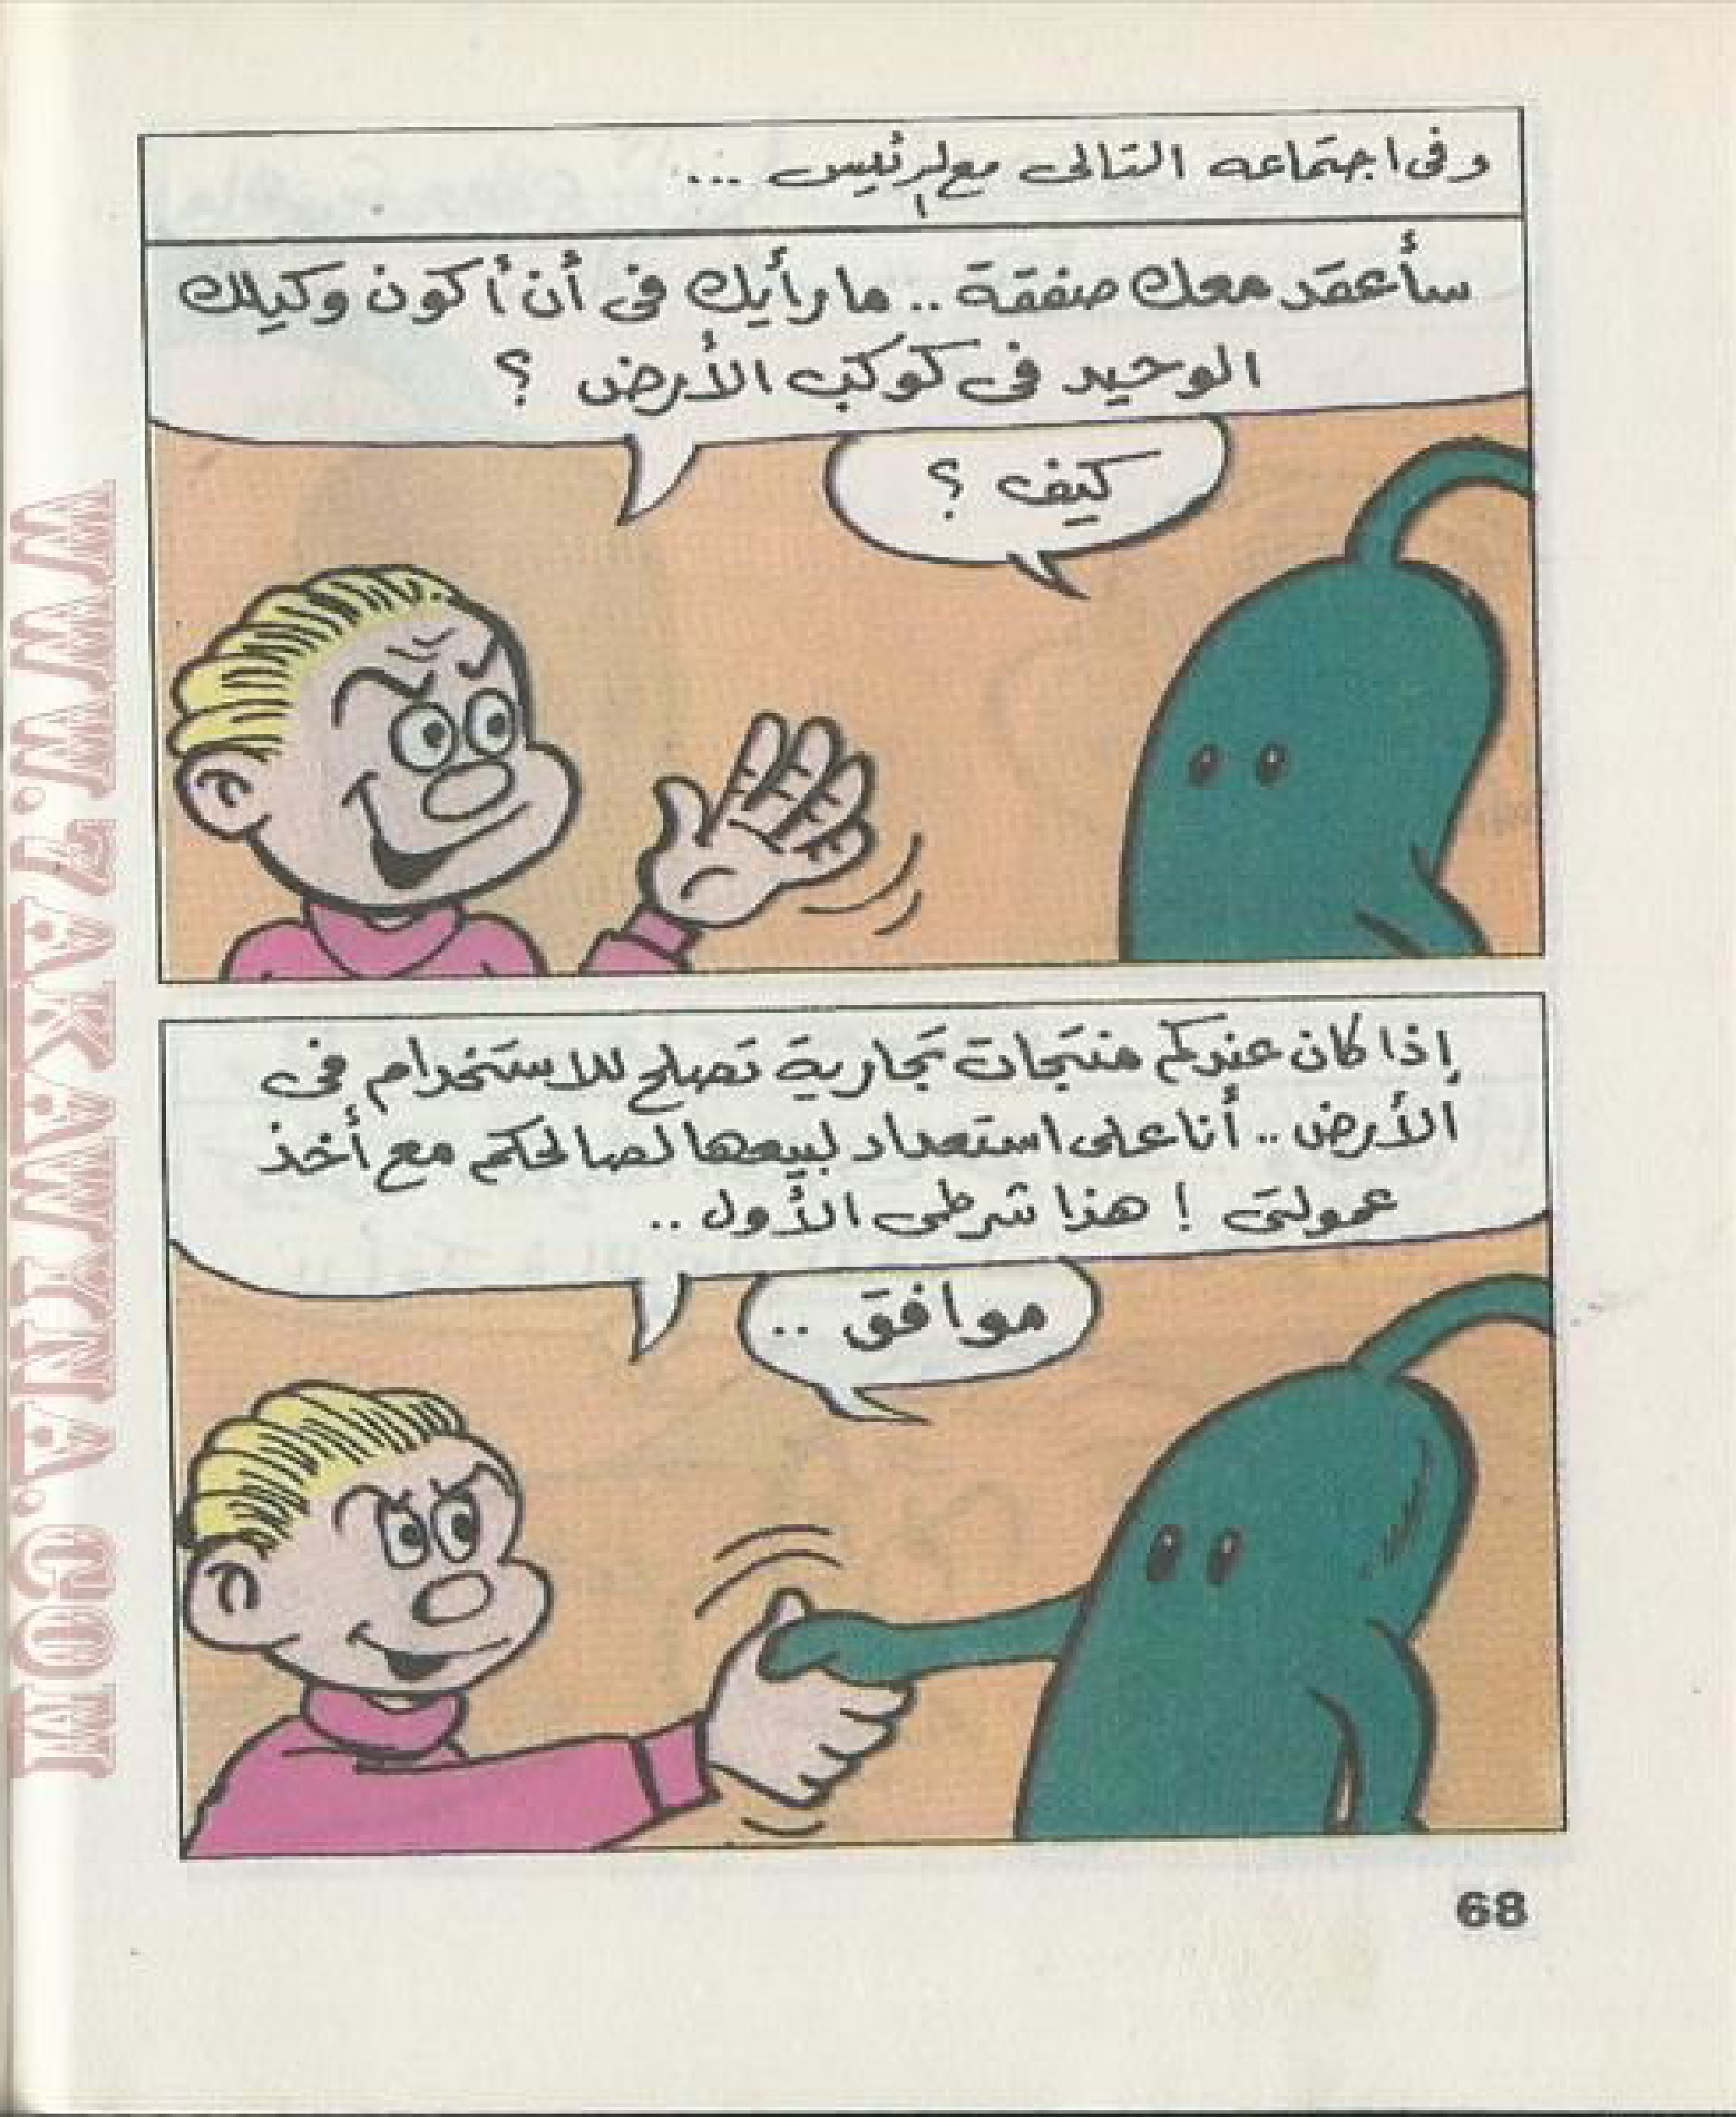 وفى اجتماعه التالى مع الرئيس ...
سأعقد معك صفقة .. ما رأيك فى أن أكون وكيلك
الوحيد فى كوكب الأرض ؟
كيف ؟
إذا كان عندكم منتجات تجارية تصلح للاستخدام فى
الأرض .. أنا على استعداد لبيعها لصالحكم مع أخذ
عمولتى ! هذا شرطى الأول ..
موافق ..
68
WWW.7AKAWITNA.COM